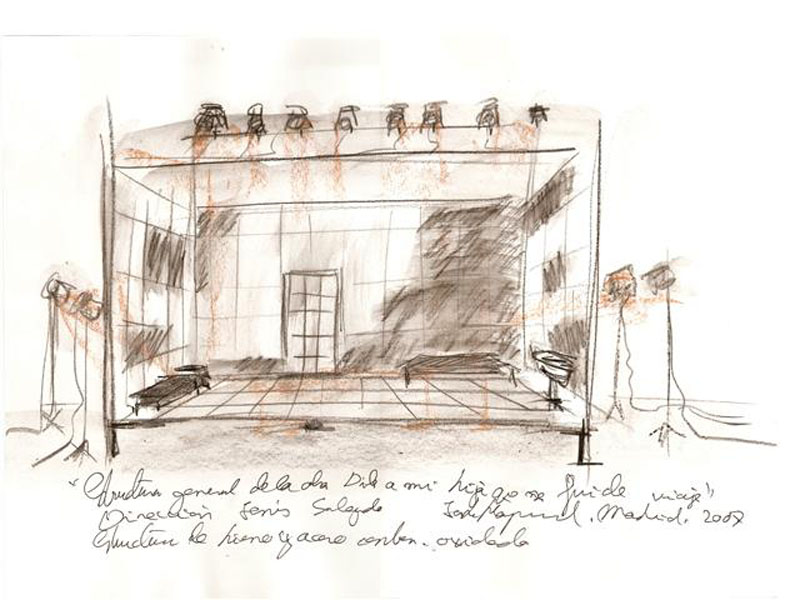 "Estructura general de la obra Dile a mi hija que me fui de viaje"
Dirección Jesús Salgado José Manuel. Madrid. 2007
Estructura de hierro y acero oxidada